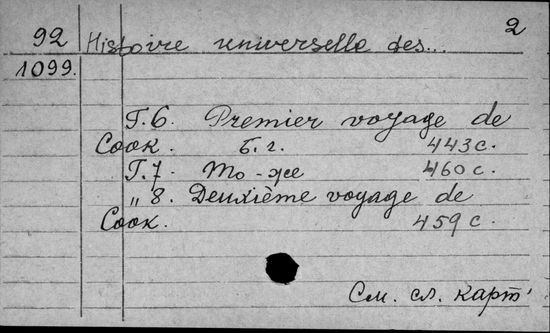 2
92 Histoire universelle des...
1099.
Т.6. Premier voyage de
Cook. Б.г. 443с.
Т.7. То-же 460с.
„ 8. Deuxième voyage de
Cook. 459с.
См. сл. карт